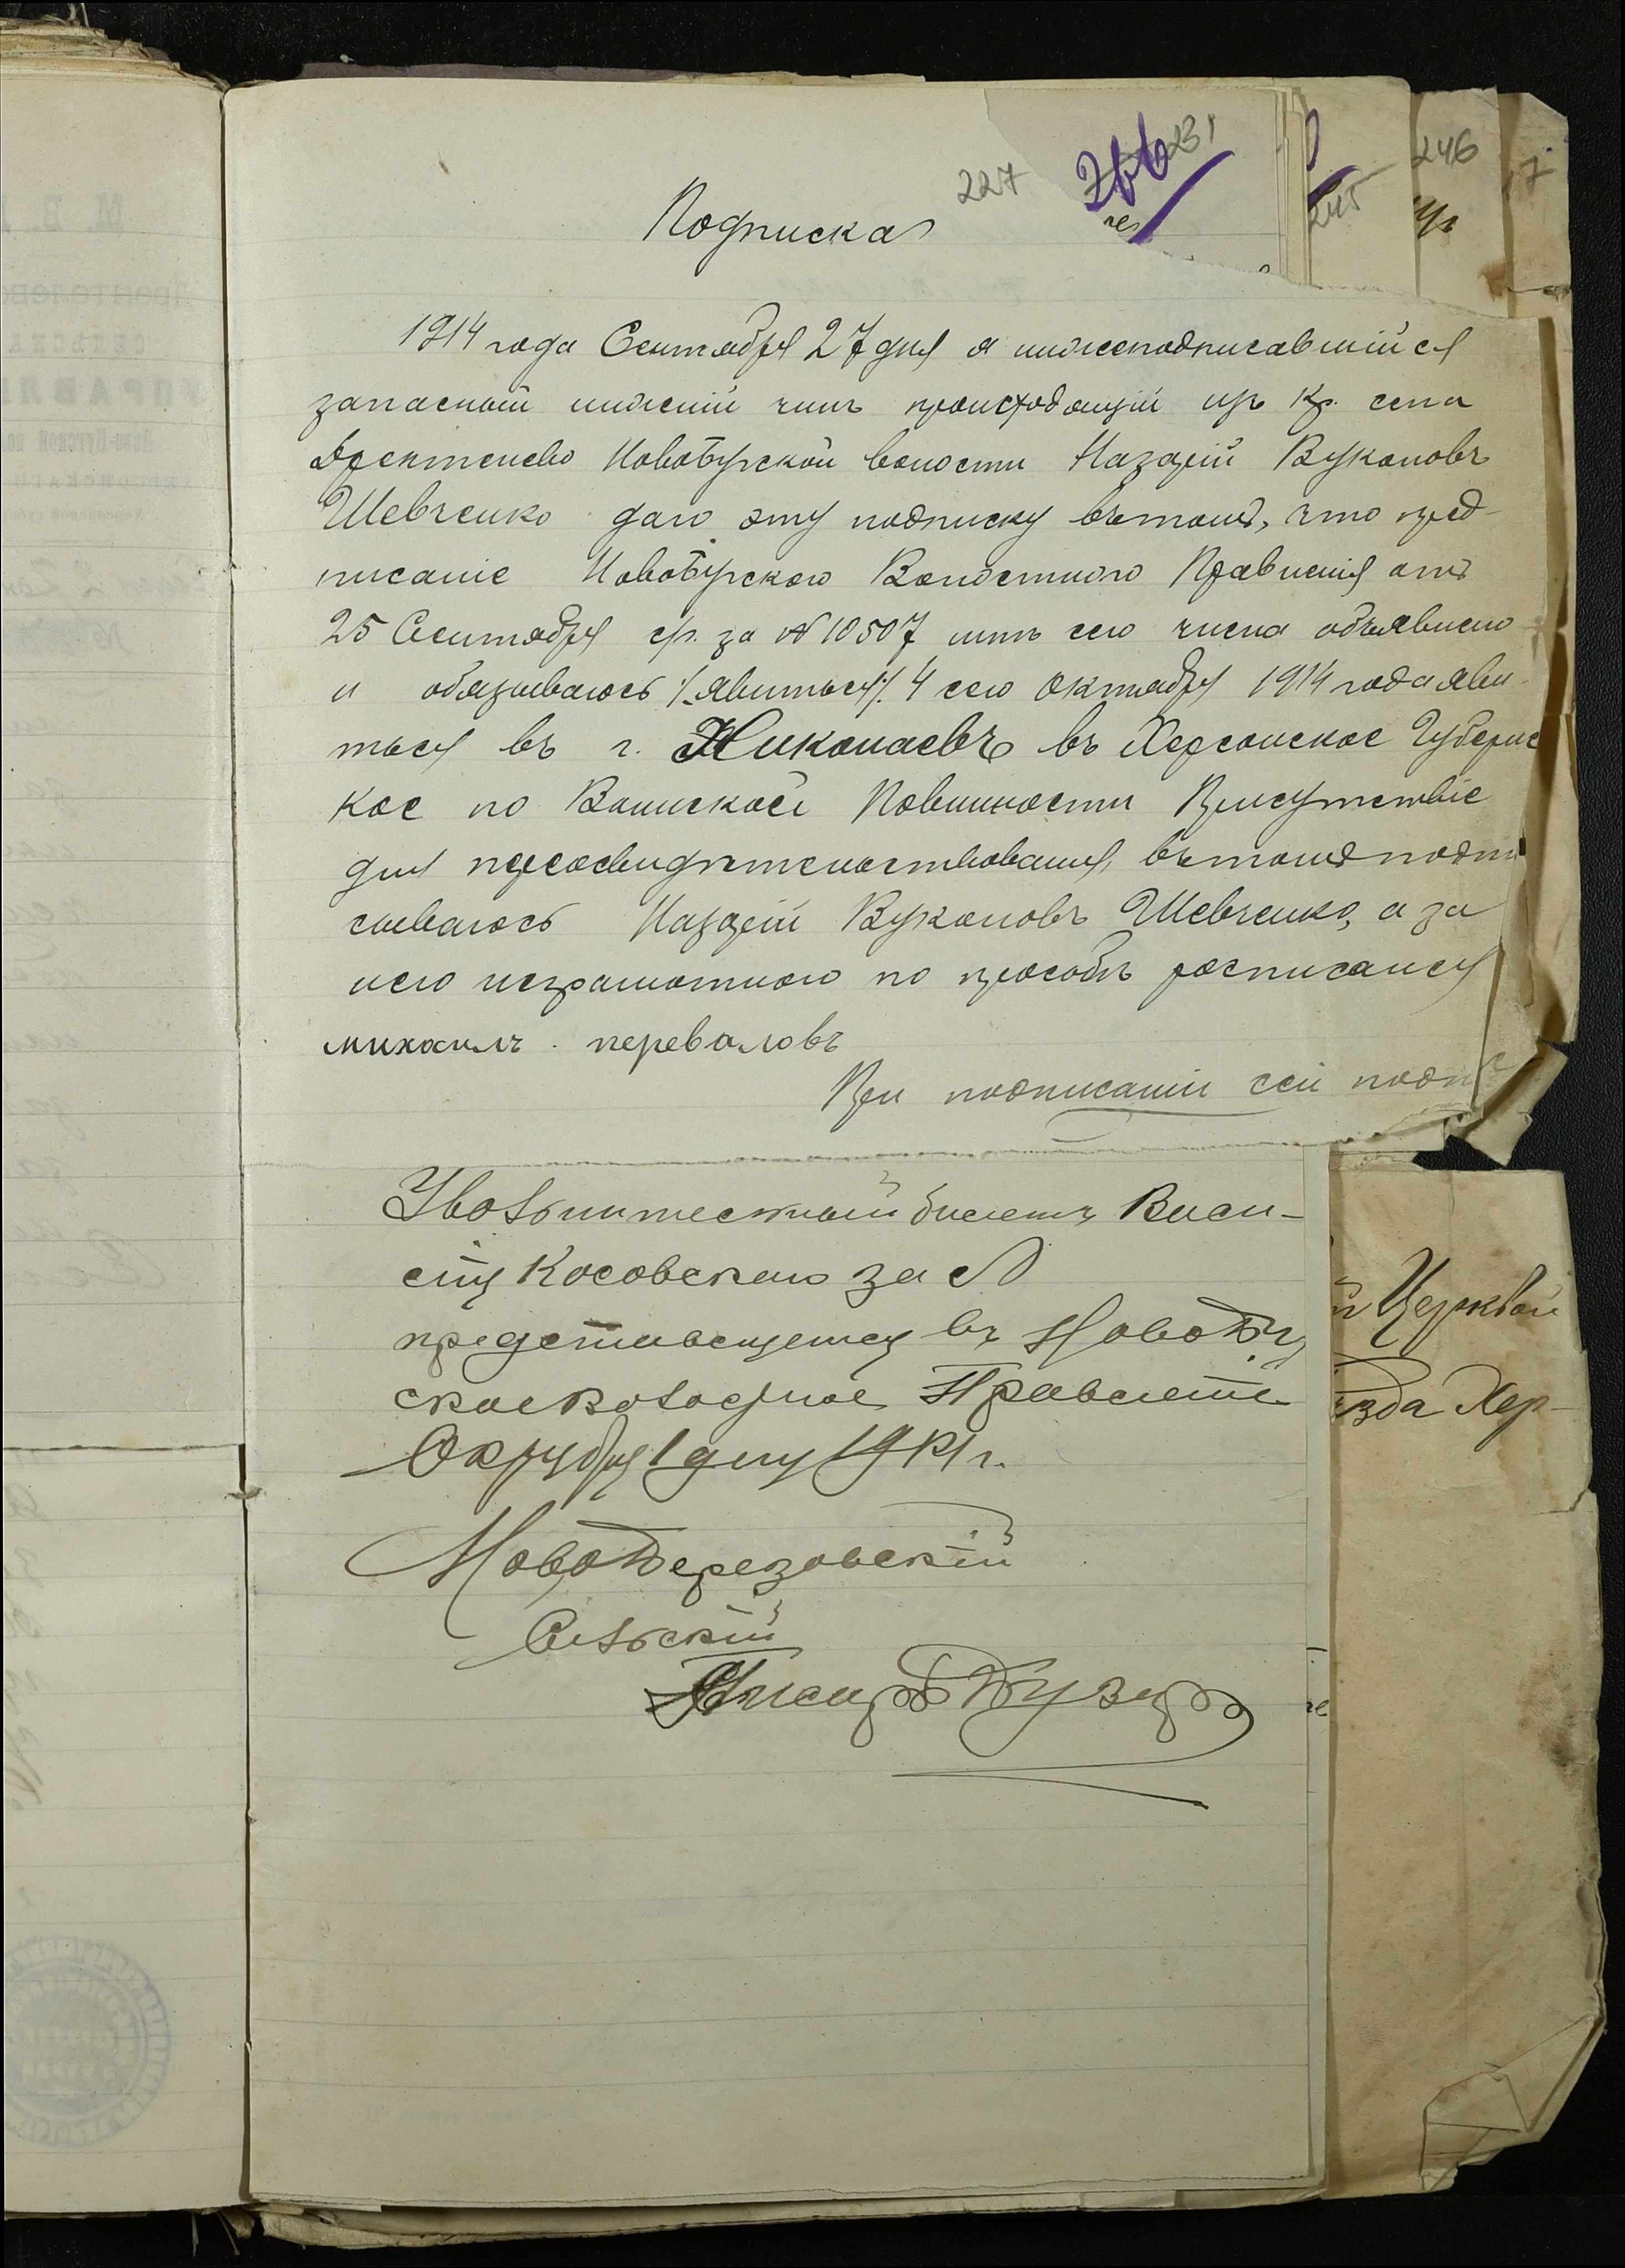 227
231
246
245
Подписка
1914 года Сентября 27 дня я нижеподписавшійся
запасный нижній чинъ происходящій изъ кр. села
Новобугской волости Назарій Вуколовъ
Шевченко даю эту подписку въ томъ, что пред-
писаніе Новобугскаго Волостного Правленія отъ
25 Сентября с/г. за № 10507 мнѣ сего числа объявлено
и обязываюсь /.явиться/. 4 сего Октября 1914 года яви-
ться въ г. Николаевъ въ Херсонское Губернс
кое по Воинской Повинности Присутствіе
для переосвидѣтельствованія, въ томъ подпи
сываюсь Назарій Вуколовъ Шевченко, а за
него неграмотного по прозбѣ росписался
михаилъ переваловъ
При подписаніи сей подпис
Увольнительный билетъ
Косовскаго за №
представляется въ Новобуг
ское Волосное Правленіе
Октября 1 дня 1914 г.
Новоберезовскій
Сельскій
Писарь
й Церквой
ѣзда Хер-